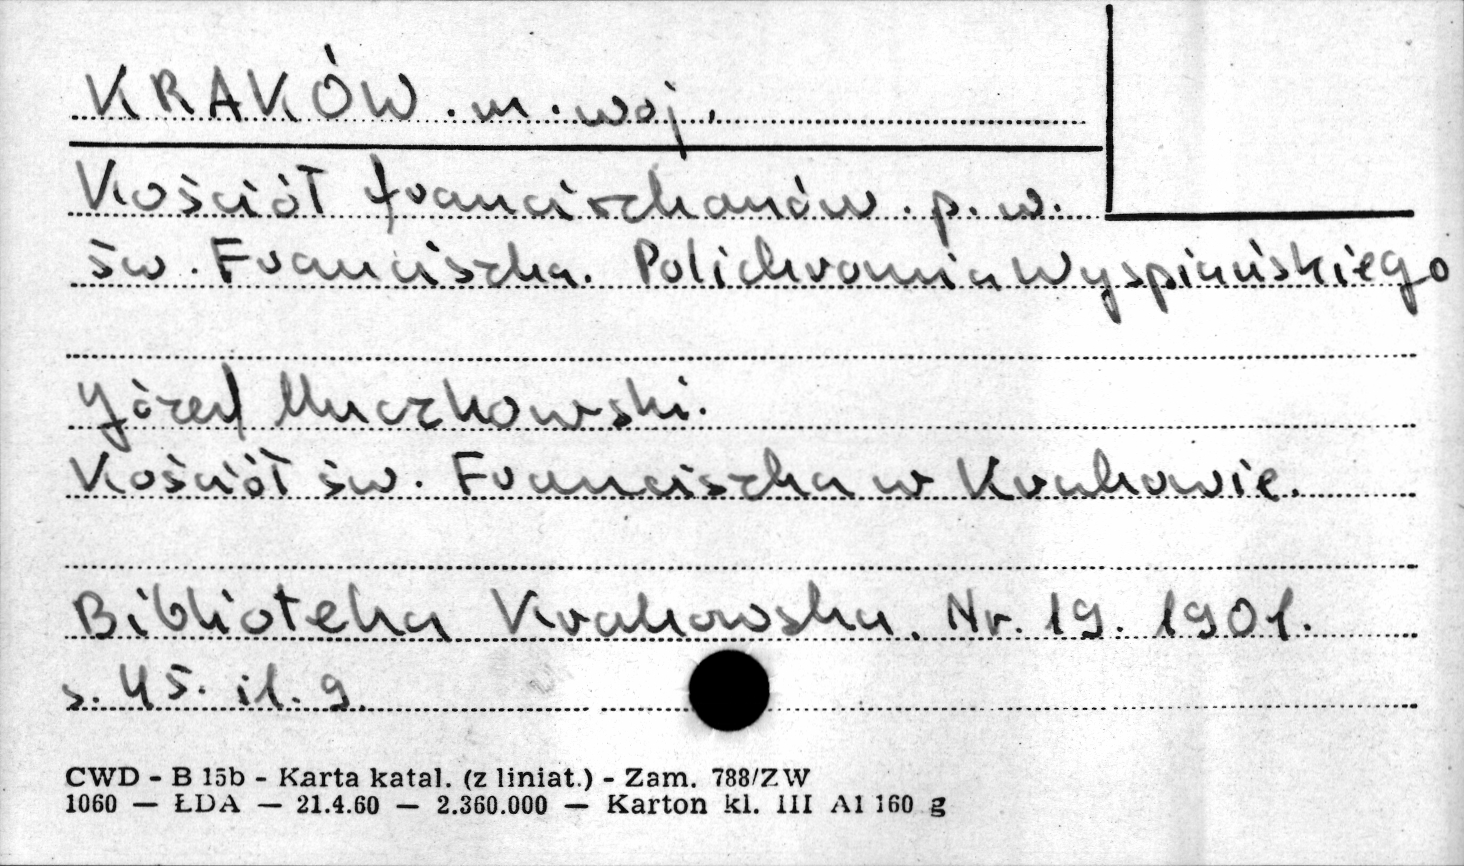 KRAKÓW . m . woj .
Kościół franciszkanów . p. w.
św . Franciszka. Polichromia Wyspiańskiego
Józef Muczkowski.
Kościół św. Franciszka w Krakowie.
Biblioteka Krakowska. Nr. 19. 1901.
s. 45. il. 9.
CWD - B 15b - Karta katal. (z liniat.) - Zam. 788/ZW
1060 — ŁDA — 21.4.60 — 2.360.000 — Karton kl. III A1 160 g